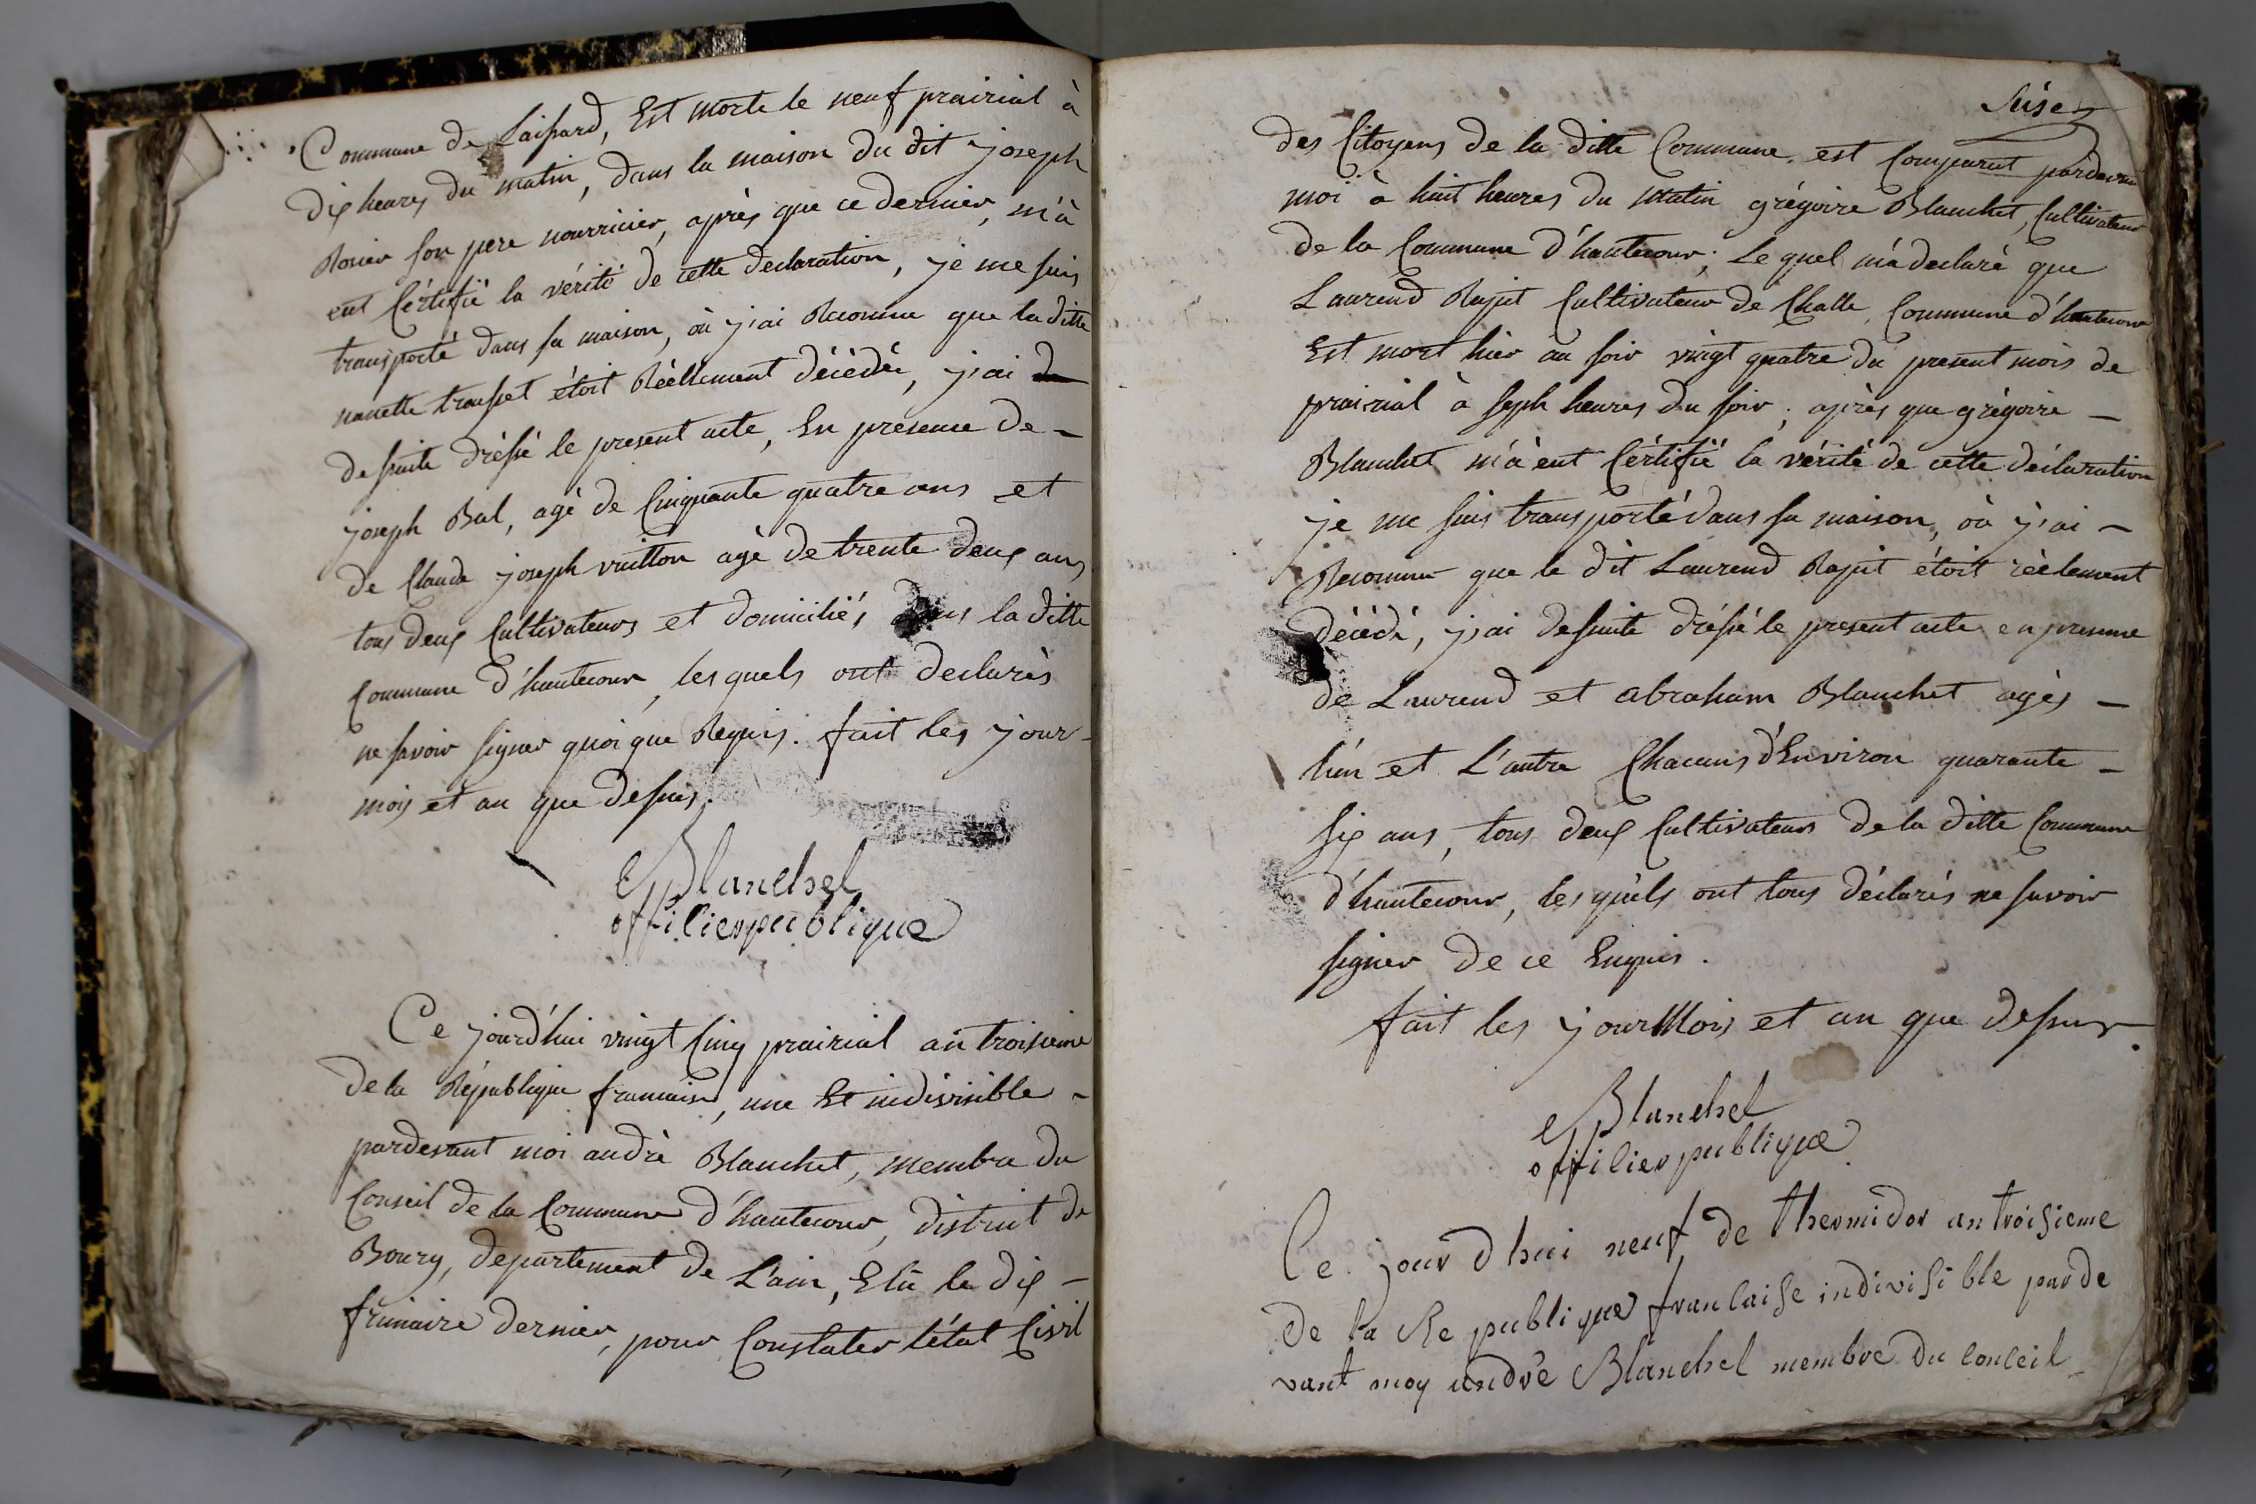 Commune de Laissard, Est morte le neuf prairial à
dix heures du matin, dans la maison du dit joseph
Rosier son pere nourricier, après que ce dernier, m'à
eut Cértifié la vérité de cette declaration, je me suis
transporté dans sa maison, où j'ai Reconnu que la ditte
nanette étoit Réèllement décèdée, j'ai
de suitte dréssé le present acte, En presence de
joseph Bal, agé de Cinquante quatre ans et
de Claude joseph vuitton agé de trente deux ans
tous deux Cultivateurs et domiciliés dans la ditte
Commune d'hautecour, les quels ont declarès
ne savoir signer quoi que Requis. fait les jour
mois et an que dessus.
Blanchet
offilier publique
Ce jourd'hui vingt Cinq prairial an troisieme
de la République francaise, une Et indivisible
pardevant moi andrè Blanchet, membre du
Conseil de la Commune d'hautecour, district de
Bourg, departement de L'ain, Elû le dix
frimaire dernier, pour Constater l'état Civil
des Citoyens de la ditte Commune est Comparut pardevant
moi à huit heures du matin grégoire Blanchet, Cultivateur
de la Commune d'hautecour; Le quel m'à declarè que
Laurend Rajut Cultivateur de Challe, Commune d'hautecour
Est mort hier au soir vingt quatre du present mois de
prairial à seph heures du soir, après que grégoire
Blanchet m'à eut Cértifié la vérité de cette déclaration
je me suis transporté dans sa maison, où j'ai
Reconnu que le dit Laurend Rajut étoit rèèlement
décèdé, j'ai desuitte dréssé le present acte en presence
de Laurend et abraham Blanchet agès
l'ùn et L'autre Chacuns d'Environ quarante
six ans, tous deux Cultivateurs de la ditte Commune
d'hautecour, les quels ont tous déclarés ne savoir
signer de ce Enquis.
fait les jour Mois et an que dessus
Blanchet
offilier publique
Ce jour d hui neuf de thermidor an troisieme
de la Re publique franlaise indivisible par de
vant moy andré Blanchet membre du conceil